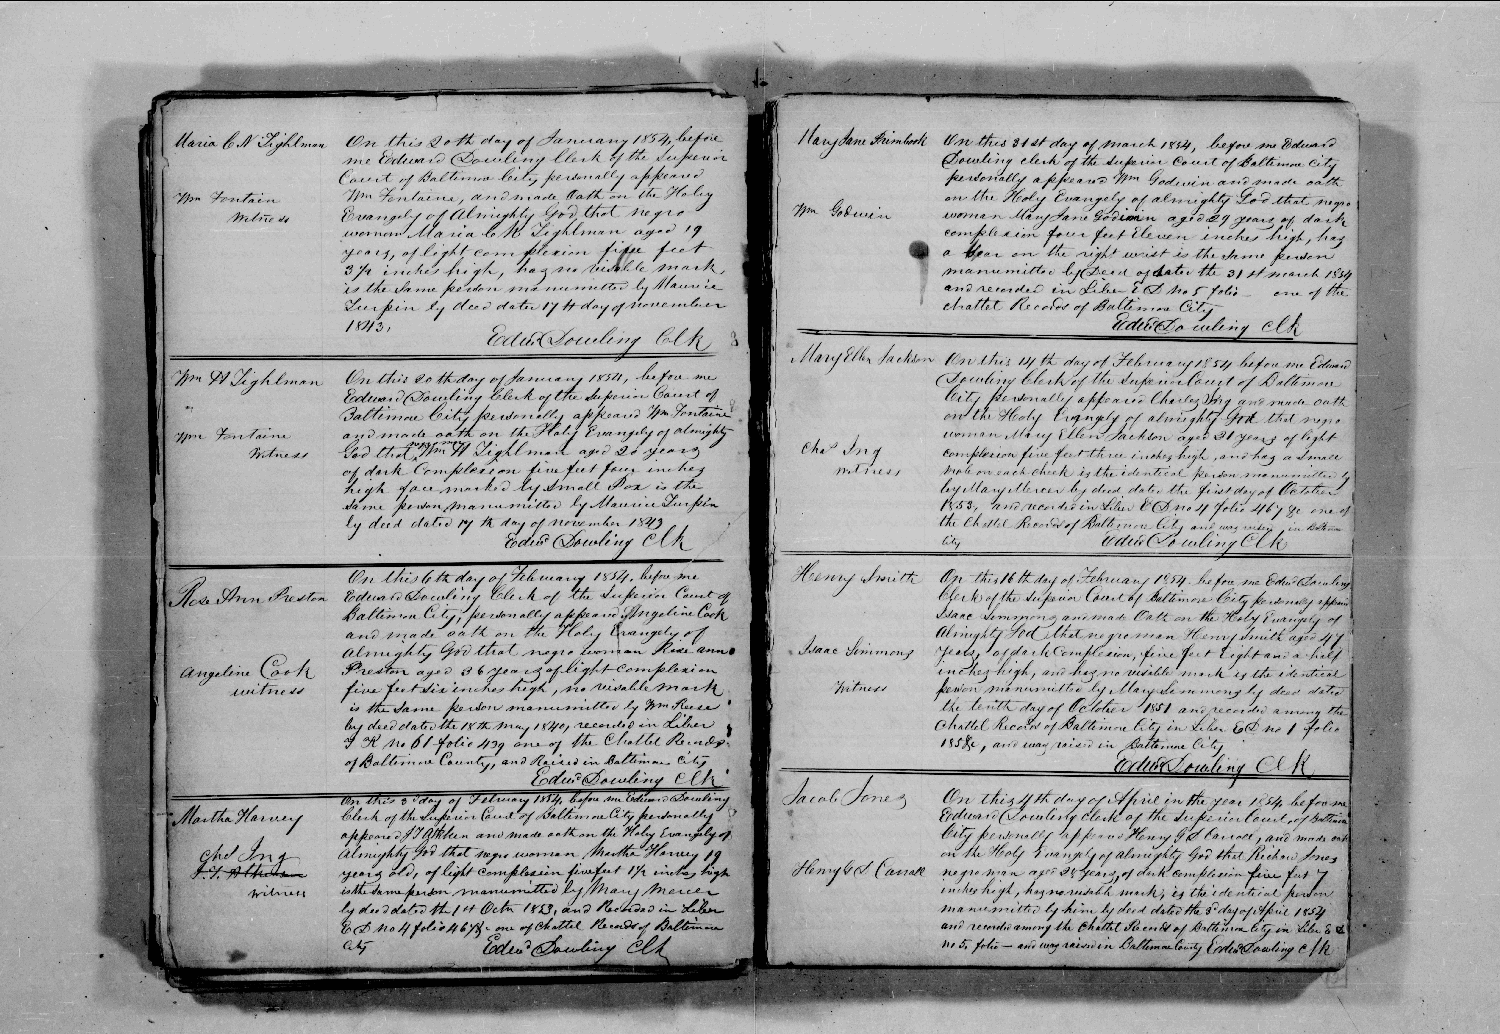 Maria C N Tighlman
Wm Fontain
Witness
On this 20th day of January 1854, before
me Edward Dowling Clerk of the Superior
Court of Baltimore City, personally appeared
Wm Fontaine, and made Oath on the Holey
Evangely of Almighty God that negro
woman Maria C N Tighlman aged 19
years, of light complexion five feet
3½ inches high, has no visable mark,
is the same person manumitted by Maurice
Turpin by deed dated 17th day of november
1843,
Edwd Dowling Clk
Wm H Tighlman
Wm Fontaine
Witness
On this 20th day of January 1854, before me
Edward Dowling Clerk of the Superior Court of
Baltimore City personally appeared Wm Fontaine
and made oath on the Holy Evangely of almighty
God that negro man Wm H Tighlman aged 20 years
of dark Complexion five feet four inches
high face marked by Small Pox is the
same person manumitted by Maurice Turpin
by deed dated 17th day of november 1843
Edwd Dowling Clk
Rose Ann Preston
Angeline Cook
witness
On this 6th day of February 1854, before me
Edward Dowling Clerk of the Superior Court of
Baltimore City, personally appeared Angeline Cook
and made oath on the Holy Evangely of
Almighty God that negro woman Rose ann
Preston aged 36 years of light complexion
five feet six inches high, no visable mark
is the same person manumitted by Wm Reese
by deed dated the 18th May 1840, recorded in Liber
T K no 61 folio 439 one of the Chattel Records
of Baltimore County, and Raised in Baltimore City
Edwd Dowling Clk
Martha Harvey
Chs Ing
witness
On this 3d day of February 1854, before me Edward Dowling
Clerk of the Superior Court of Baltimore City personally
appeared and made oath on the Holy Evangely of
Almighty God that negro woman Martha Harvey 19
years old, of light complexion five feet 1½ inches high
is the same person manumitted by Mary Mercer
by deed dated the 1st Octr 1853, and Recorded in Liber
E D no 4 folio 467 &c one of Chattel Records of Baltimore
City
Edwd Dowling Clk
Mary Jane
Wm Godwin
On this 31st day of march 1854, before me Edward
Dowling clerk of the superior Court of Baltimore City
personally appeared Wm Godwin and made oath
on the Holy Evangely of almighty God that negro
woman Mary Jane Godwin aged 29 years of dark
complexion four feet Eleven inches high, has
a scar on the right wrist is the same person
manumitted by Deed dated the 31st march 1854
and recorded in Liber E D no 5 folio — one of the
chattel Records of Baltimore City
Edwd Dowling Clk
Mary Ellen Jackson
Chs Ing
witness
On this 14th day of February 1854 before me Edward
Dowling Clerk of the Superior Court of Baltimore
City personally appeared Charles Ing and made oath
on the Holy Evangely of almighty God that negro
woman Mary Ellen Jackson aged 21 years of light
complexion five feet three inches high, and has a Small
mole on each cheek is the identical person manumitted by
by Mary Mercer by deed dated the first day of October
1853, and recorded in Liber E D no 4 folio 467 &c one of
the Chattel Records of Baltimore City and was raised in Baltimore
City
Edwd Dowling Clk
Henry Smith
Isaac Simmons
Witness
On this 16th day of February 1854 before me Edwd Dowling
Clerk of the Superior Court of Baltimore City personally appeared
Isaac Simmons and made Oath on the Holy Evangely of
Almighty God that negro man Henry Smith aged 47
years, of dark complexion, five feet eight and a half
inches high, and has no visable mark is the identical
person manumitted by Mary Simmons by deed dated
the tenth day of October 1851 and recorded among the
Chattel Records of Baltimore City in Liber E D no 1 folio
185 &c, and was raised in Baltimore City
Edwd Dowling Clk
Jacob Jones
Henry G S Carroll
On this 4th day of April in the year 1854 before me
Edward Dowling clerk of the Superior Court, of Baltimore
City personally appeared Henry G S Carroll, and made oath
on the Holy Evangely of almighty God that Richard Jones
negro man aged 28 years, of dark complexion five feet 7
inches high, has no visable mark, is the identical person
manumitted by him by deed dated the 3d day of April 1854
and recorded among the Chattel Records of Baltimore City in Liber E D
no 5, folio — and was raised in Baltimore County Edwd Dowling Clk